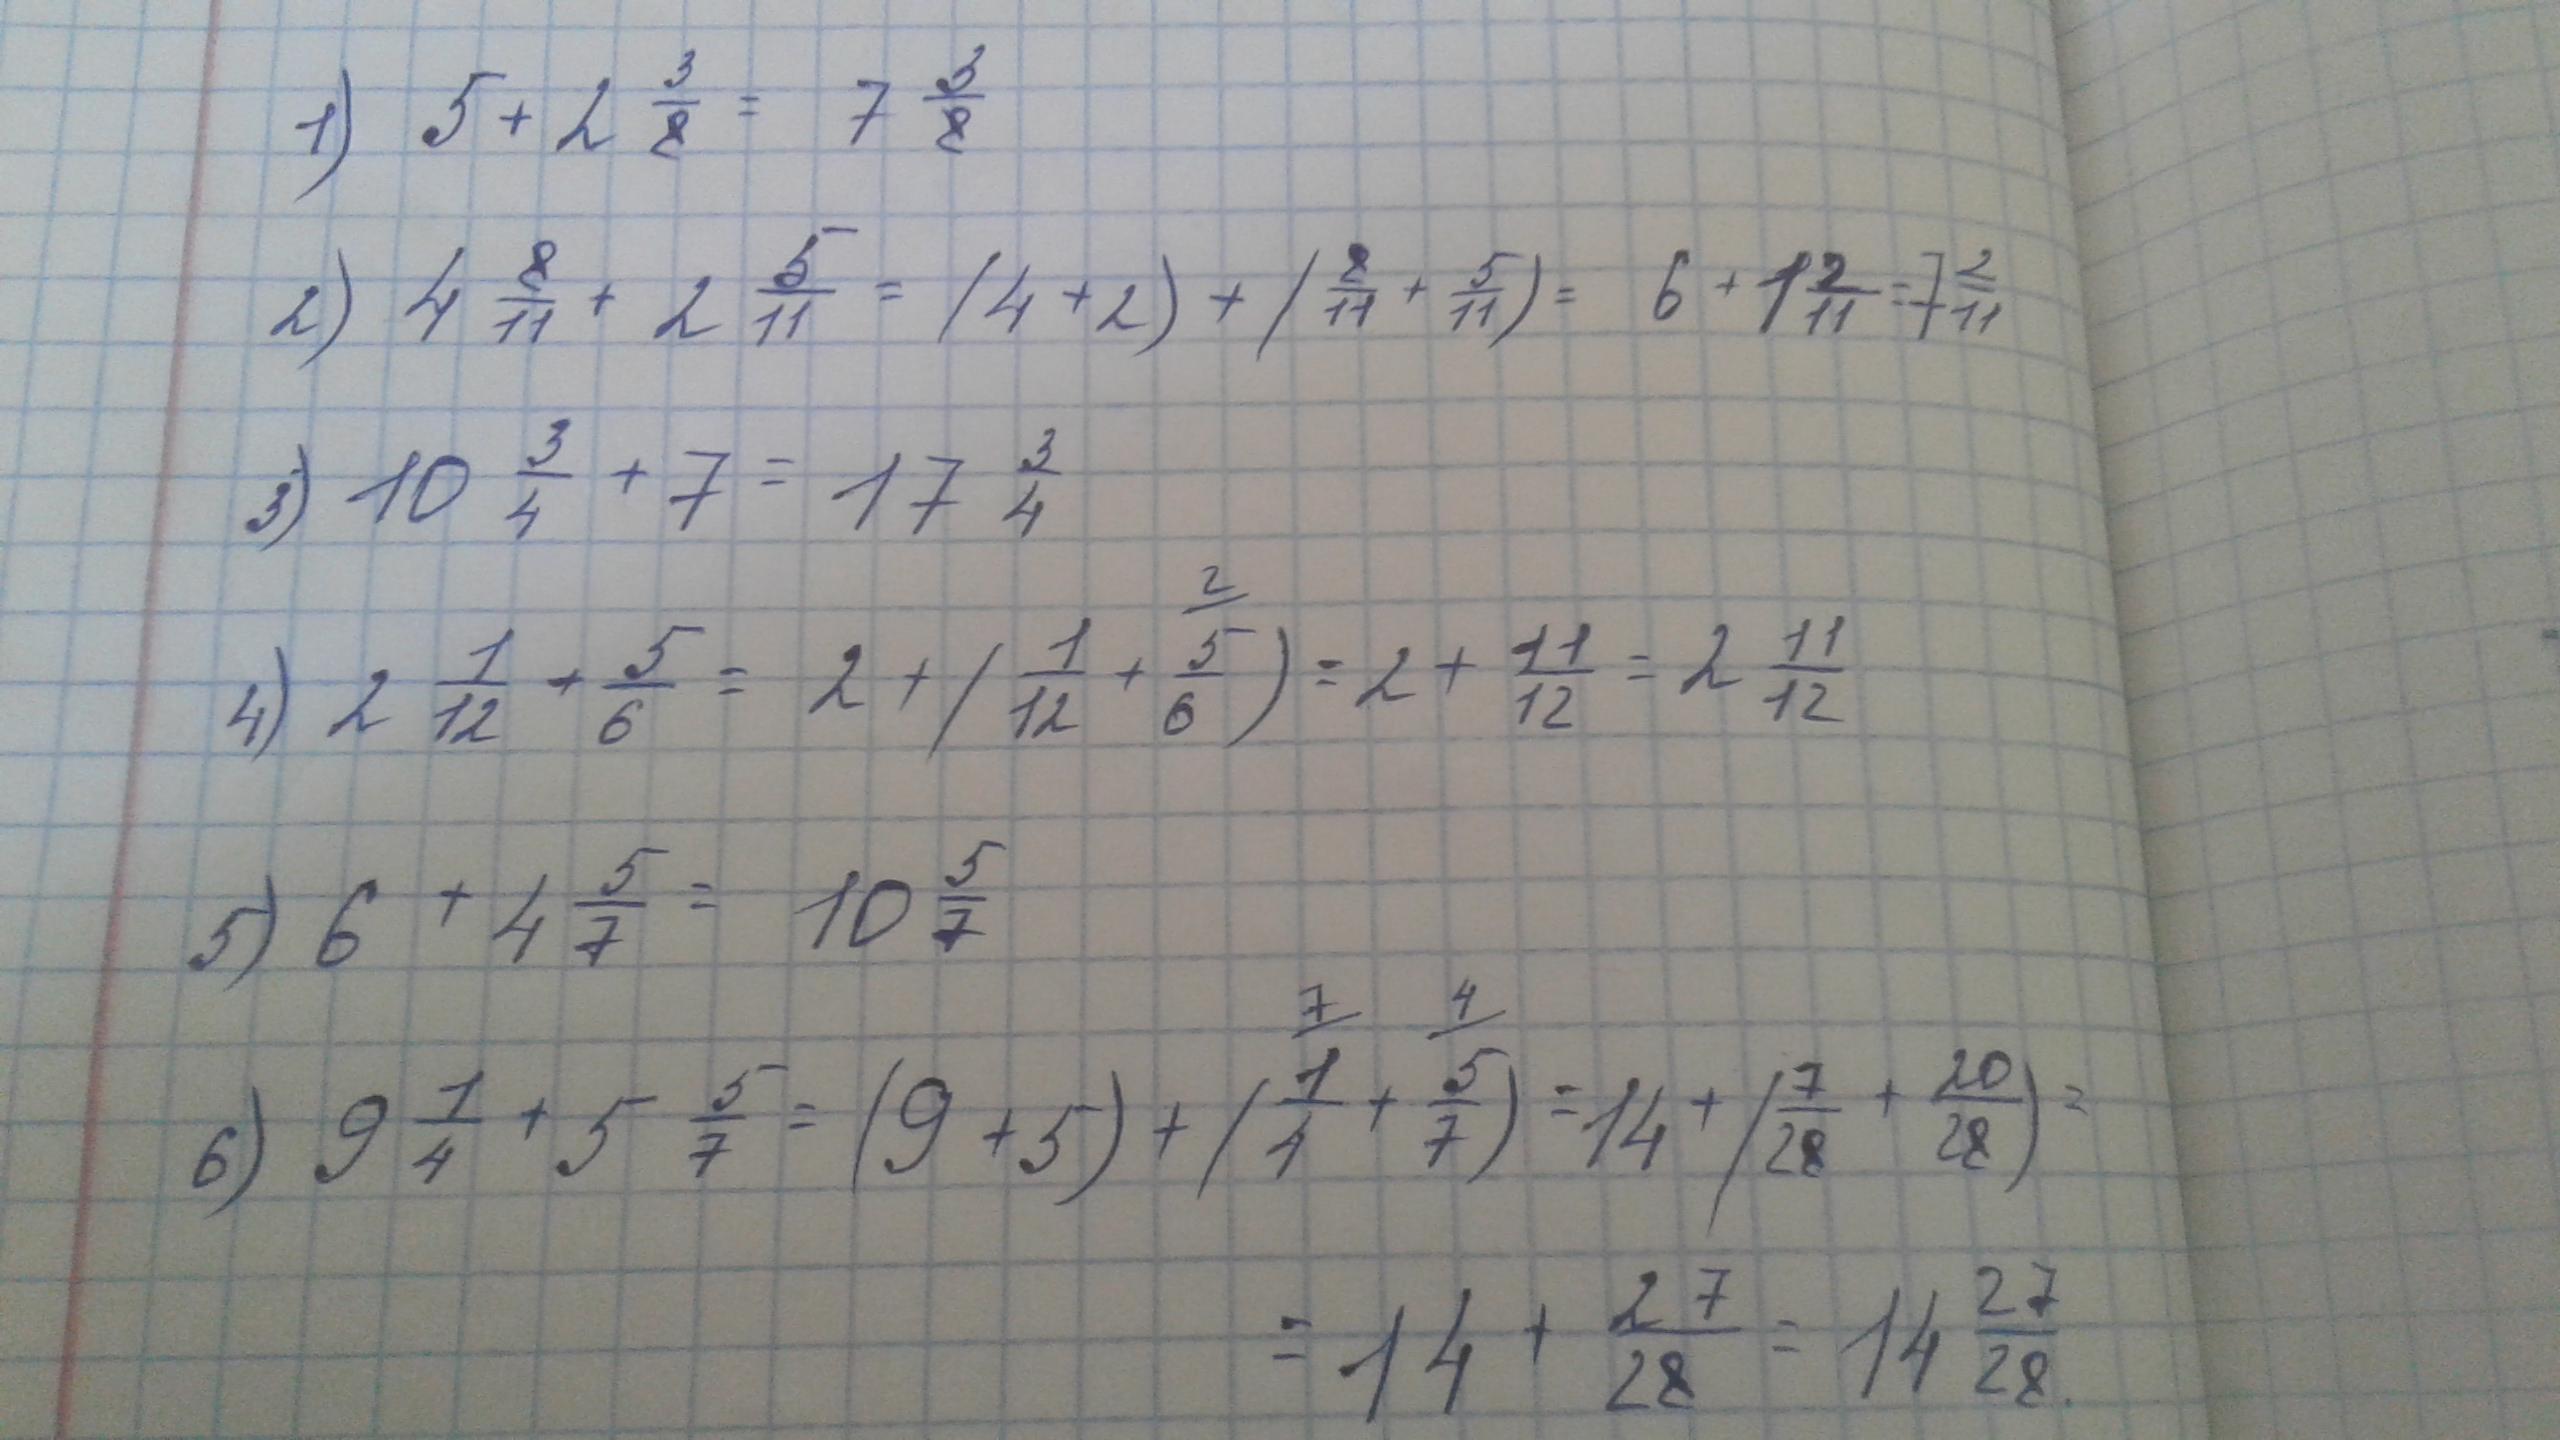 1) 5 + 2 3/8 = 7 3/8
2) 4 8/11 + 2 5/11 = (4 + 2) + (8/11 + 5/11) = 6 + 1 2/11 = 7 2/11
3) 10 3/4 + 7 = 17 3/4
4) 2 1/12 + 5/6 = 2 + (1/12 + 5/6 2/) = 2 + 11/12 = 2 11/12
5) 6 + 4 5/7 = 10 5/7
6) 9 1/4 + 5 5/7 = (9 + 5) + (1/4 7/ + 5/7 4/) = 14 + (7/28 + 20/28) =
= 14 + 27/28 = 14 27/28.